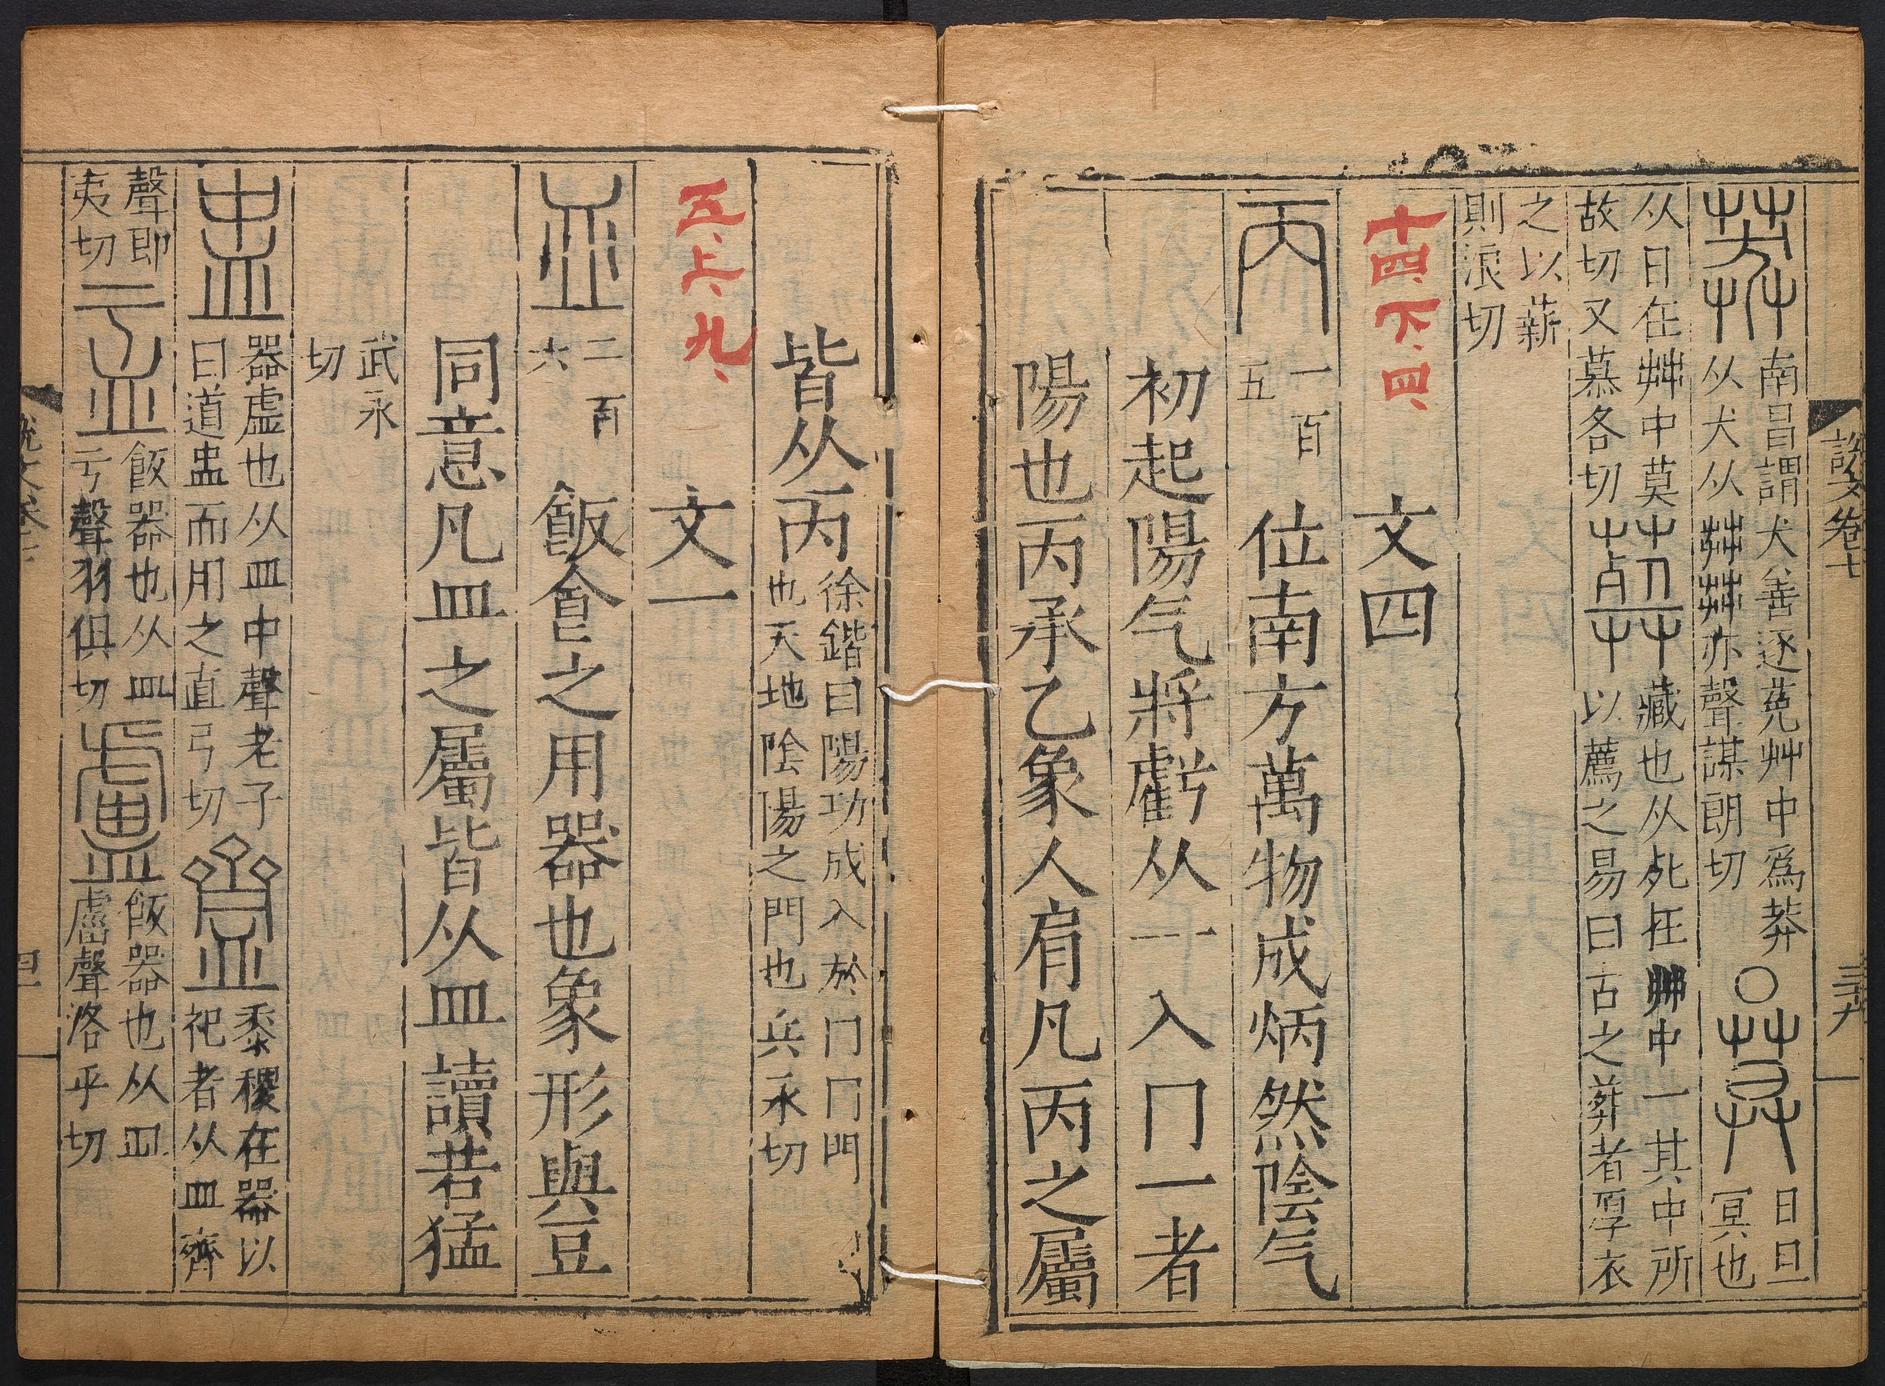 說文卷七
三六
莽
南昌謂犬善逐莬艸中爲莽
从犬从茻茻亦聲謀朗切
〇
莫
日旦
冥也
从日在茻中莫
故切又慕各切
葬
藏也从死在茻中一其中所
以薦之易曰古之葬者厚衣
之以薪
則浪切
文四
十四、下、四、
丙
一百
五
位南方萬物成炳然陰气
初起陽气將虧从一入冂一者
陽也丙承乙象人肩凡丙之屬
皆从丙
徐鍇曰陽功成入於冂冂門
也天地陰陽之門也兵永切
文一
五、上、九、
皿
二百
六
飯食之用器也象形與豆
同意凡皿之屬皆从皿讀若猛
武永
切
盅
器虛也从皿中聲老子
曰道盅而用之直弓切
齍
黍稷在器以
祀者从皿齊
聲即
夷切
盂
飯器也从皿
亏聲羽俱切
盧
飯器也从皿
䖒聲洛乎切
說文卷七